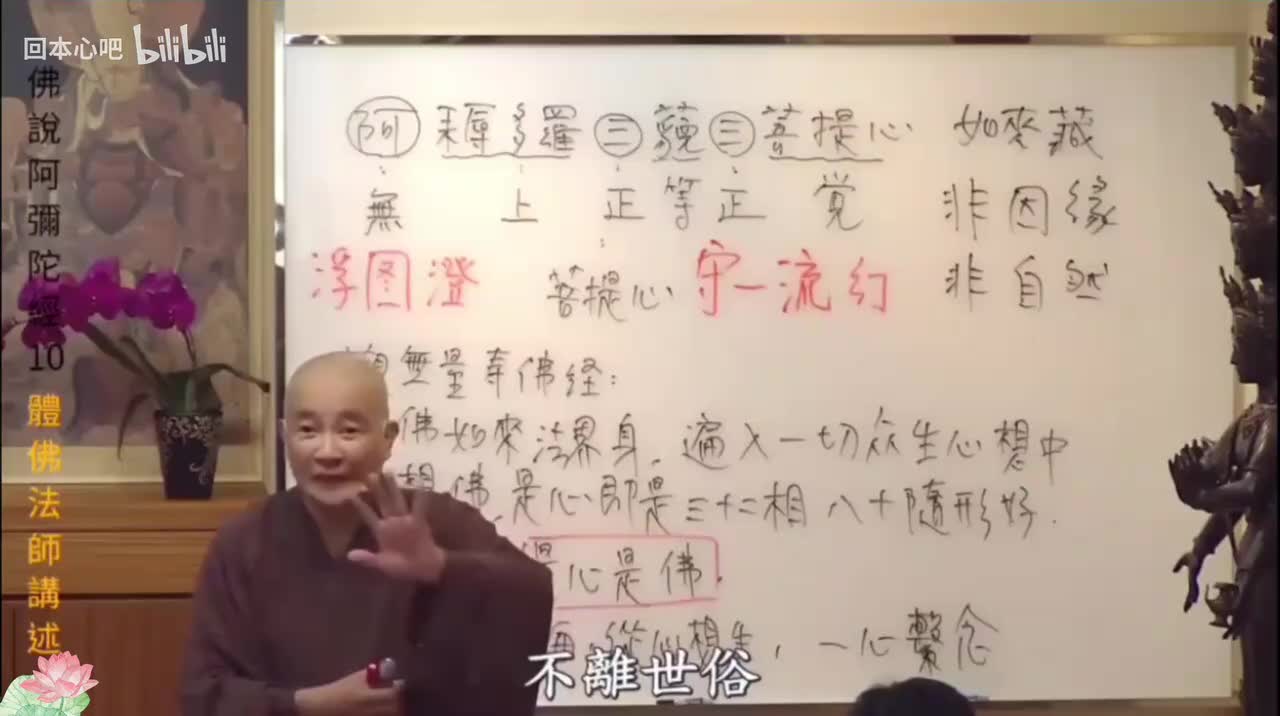 回本心吧 bilibili
佛說阿彌陀經10 體佛法師講述
阿耨多羅三藐三菩提心 如來藏
無上正等正覚 非因緣
浮图澄 菩提心 守一流幻 非自然
無量寿佛経：
佛如來法界身，遍入一切众生心想中
想佛，是心即是三十二相八十隨形好．
是心是佛．
從心想生，一心繫念
不離世俗